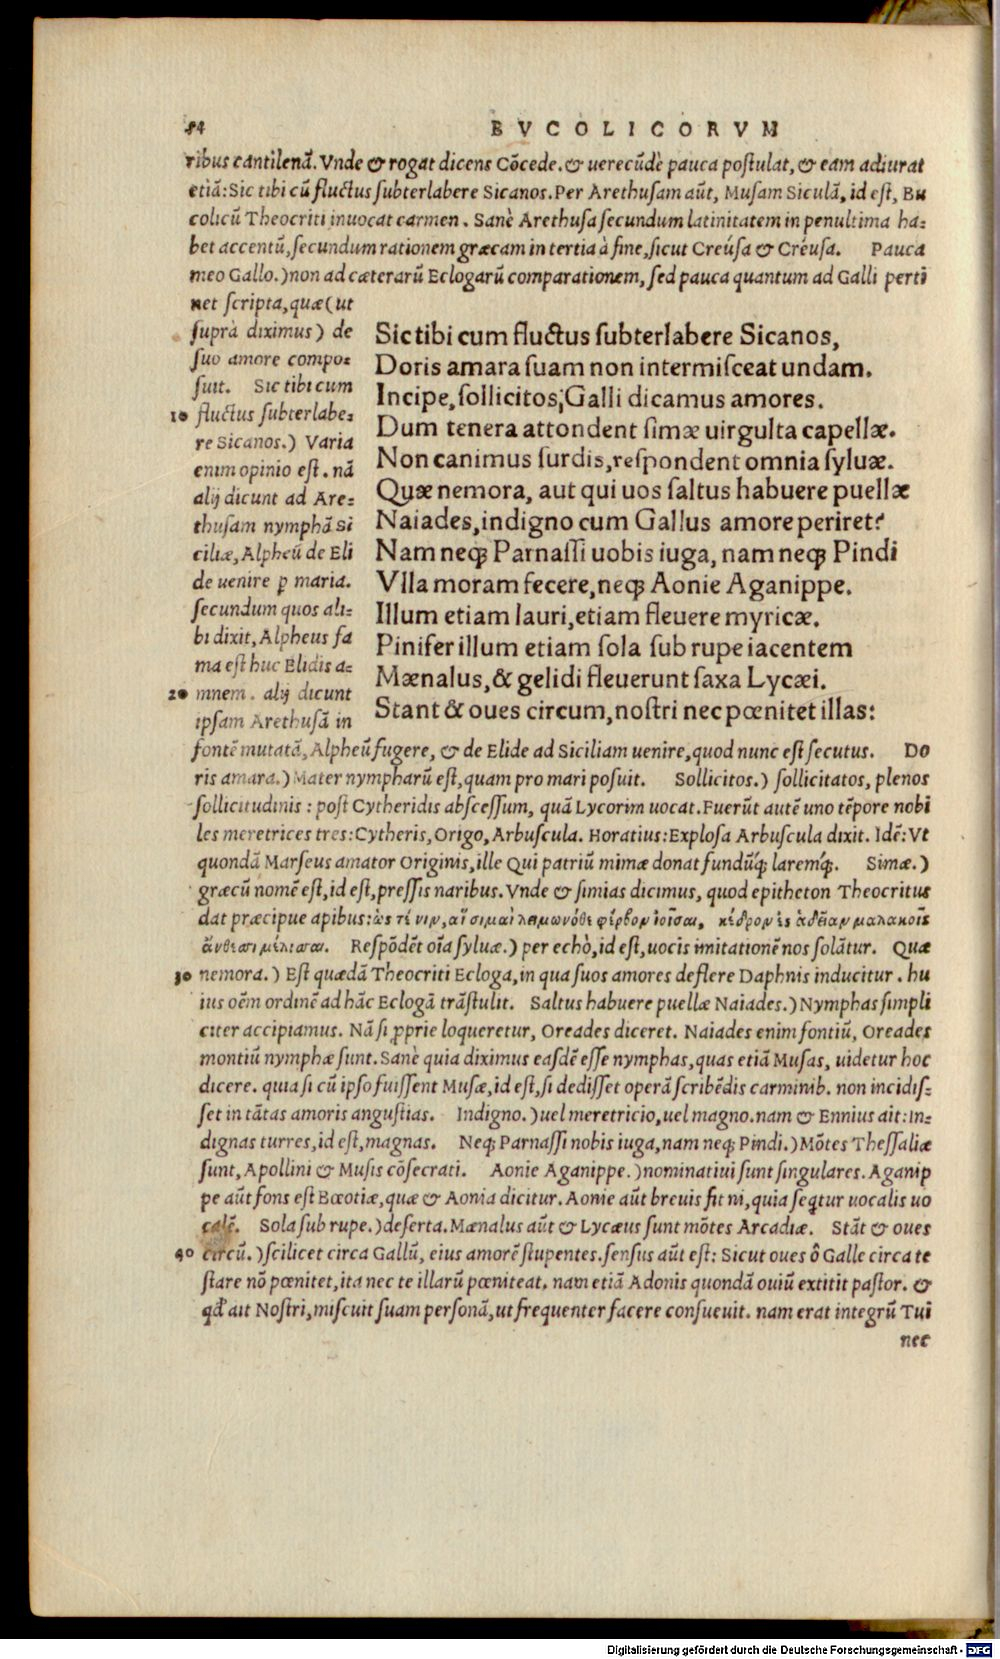 54
BVCOLICORVM
ribus cantilenã. Vnde & rogat dicens Cõcede. & uerecũdè pauca postulat, & eam adiurat
etiã: Sic tibi cũ fluctus subterlabere Sicanos. Per Arethusam aũt, Musam Siculã, id est, Bu
colicũ Theocriti inuocat carmen. Sanè Arethusa secundum latinitatem in penultima ha-
bet accentũ, secundum rationem græcam in tertia à fine, sicut Creúsa & Créusa. Pauca
meo Gallo.) non ad cæterarũ Eclogarũ comparationem, sed pauca quantum ad Galli perti
net scripta, quæ (ut
suprà diximus) de
suo amore compo-
suit. Sic tibi cum
10 fluctus subterlabe-
re Sicanos.) Varia
enim opinio est. nã
alij dicunt ad Are-
thusam nymphã Si
ciliæ, Alpheũ de Eli
de uenire p maria.
secundum quos ali-
bi dixit, Alpheus fa
ma est huc Elidis a-
20 mnem. alij dicunt
ipsam Arethusã in
Sic tibi cum fluctus subterlabere Sicanos,
Doris amara suam non intermisceat undam.
Incipe, sollicitos Galli dicamus amores.
Dum tenera attondent simæ uirgulta capellæ.
Non canimus surdis, respondent omnia syluæ.
Quæ nemora, aut qui uos saltus habuere puellæ
Naiades, indigno cum Gallus amore periret?
Nam neq; Parnassi uobis iuga, nam neq; Pindi
Vlla moram fecere, neq; Aonie Aganippe.
Illum etiam lauri, etiam fleuere myricæ.
Pinifer illum etiam sola sub rupe iacentem
Mænalus, & gelidi fleuerunt saxa Lycæi.
Stant & oues circum, nostri nec pœnitet illas:
fontẽ mutatã, Alpheũ fugere, & de Elide ad Siciliam uenire, quod nunc est secutus. Do
ris amara.) Mater nympharũ est, quam pro mari posuit. Sollicitos.) sollicitatos, plenos
sollicitudinis: post Cytheridis abscessum, quã Lycorim uocat. Fuerũt autẽ uno tẽpore nobi
les meretrices tres: Cytheris, Origo, Arbuscula. Horatius: Explosa Arbuscula dixit. Idẽ: Vt
quondã Marseus amator Originis, ille Qui patriũ mimæ donat fundũq́; laremq́;. Simæ.)
græcũ nomẽ est, id est, pressis naribus. Vnde & simias dicimus, quod epitheton Theocritus
dat præcipue apibus: ὡς τέ νιν, αἵ σιμαὶ λειμωνόθε φέρβον ἰοῖσαι, κέδρον ἐς ἁδεῖαν μαλακοῖς
ἄνθεσσι μέλισσαι. Respõdẽt oĩa syluæ.) per echò, id est, uocis imitationẽ nos solãtur. Quæ
30 nemora.) Est quædã Theocriti Ecloga, in qua suos amores deflere Daphnis inducitur. hu
ius oẽm ordinẽ ad hãc Eclogã trãstulit. Saltus habuere puellæ Naiades.) Nymphas simpli
citer accipiamus. Nã si ꝓprie loqueretur, Oreades diceret. Naiades enim fontiũ, Oreades
montiũ nymphæ sunt. Sanè quia diximus easdẽ esse nymphas, quas etiã Musas, uidetur hoc
dicere. quia si cũ ipso fuissent Musæ, id est, si dedisset operã scribẽdis carminib. non incidis-
set in tãtas amoris angustias. Indigno.) uel meretricio, uel magno. nam & Ennius ait: In-
dignas turres, id est, magnas. Neq; Parnassi nobis iuga, nam neq; Pindi.) Mõtes Thessaliæ
sunt, Apollini & Musis cõsecrati. Aonie Aganippe.) nominatiui sunt singulares. Aganip
pe aũt fons est Bœotiæ, quæ & Aonia dicitur. Aonie aũt breuis fit ni, quia seqtur uocalis uo
calẽ. Sola sub rupe.) deserta. Mænalus aũt & Lycæus sunt mõtes Arcadiæ. Stãt & oues
40 circũ.) scilicet circa Gallũ, eius amorẽ stupentes. sensus aũt est: Sicut oues ô Galle circa te
stare nõ pœnitet, ita nec te illarũ pœniteat. nam etiã Adonis quondã ouiũ extitit pastor. &
qđ ait Nostri, miscuit suam personã, ut frequenter facere consueuit. nam erat integrũ Tui
nec
Digitalisierung gefördert durch die Deutsche Forschungsgemeinschaft - DFG